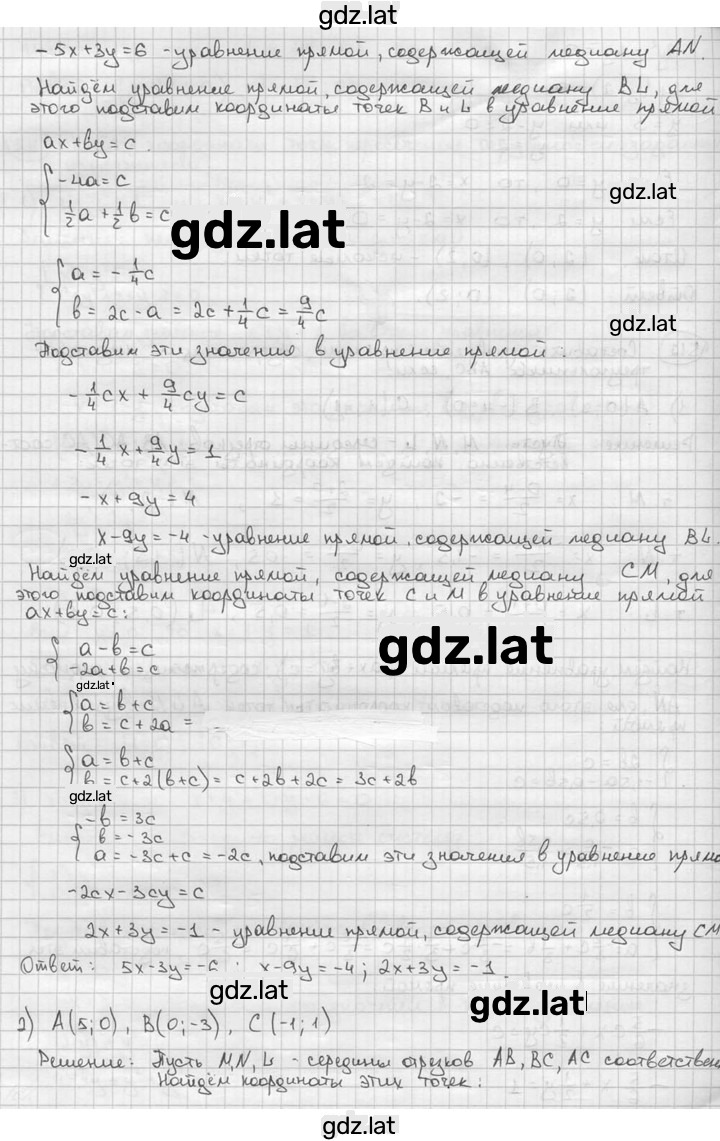 gdz.lat
-5x+3y=6 - уравнение прямой, содержащей медиану AN.
Найдём уравнение прямой, содержащей медиану BL, для
этого подставим координаты точек B и L в уравнение прямой
ax+by=c.
{-4a=c
gdz.lat
½a+½b=c
gdz.lat
{a=-¼c
b=2c-a=2c+¼c=9/4c
gdz.lat
Подставим эти значения в уравнение прямой:
-¼cx+9/4cy=c
-¼x+9/4y=1
-x+9y=4
x-9y=-4 - уравнение прямой, содержащей медиану BL.
gdz.lat
Найдём уравнение прямой, содержащей медиану CM, для
этого подставим координаты точек C и M в уравнение прямой
ax+by=c:
{a-b=c
-2a+b=c
gdz.lat
gdz.lat
{a=b+c
b=c+2a=
{a=b+c
b=c+2(b+c)=c+2b+2c=3c+2b
gdz.lat
-b=3c
{b=-3c
a=-3c+c=-2c, подставим эти значения в уравнение
-2cx-3cy=c
2x+3y=-1 - уравнение прямой, содержащей медиану CM
Ответ: 5x-3y=-6; x-9y=-4; 2x+3y=-1.
gdz.lat
gdz.lat
2) A(5;0), B(0;-3), C(-1;1)
Решение: Пусть M,N,L - середины отрезков AB, BC, AC соответствен
Найдём координаты этих точек:
gdz.lat